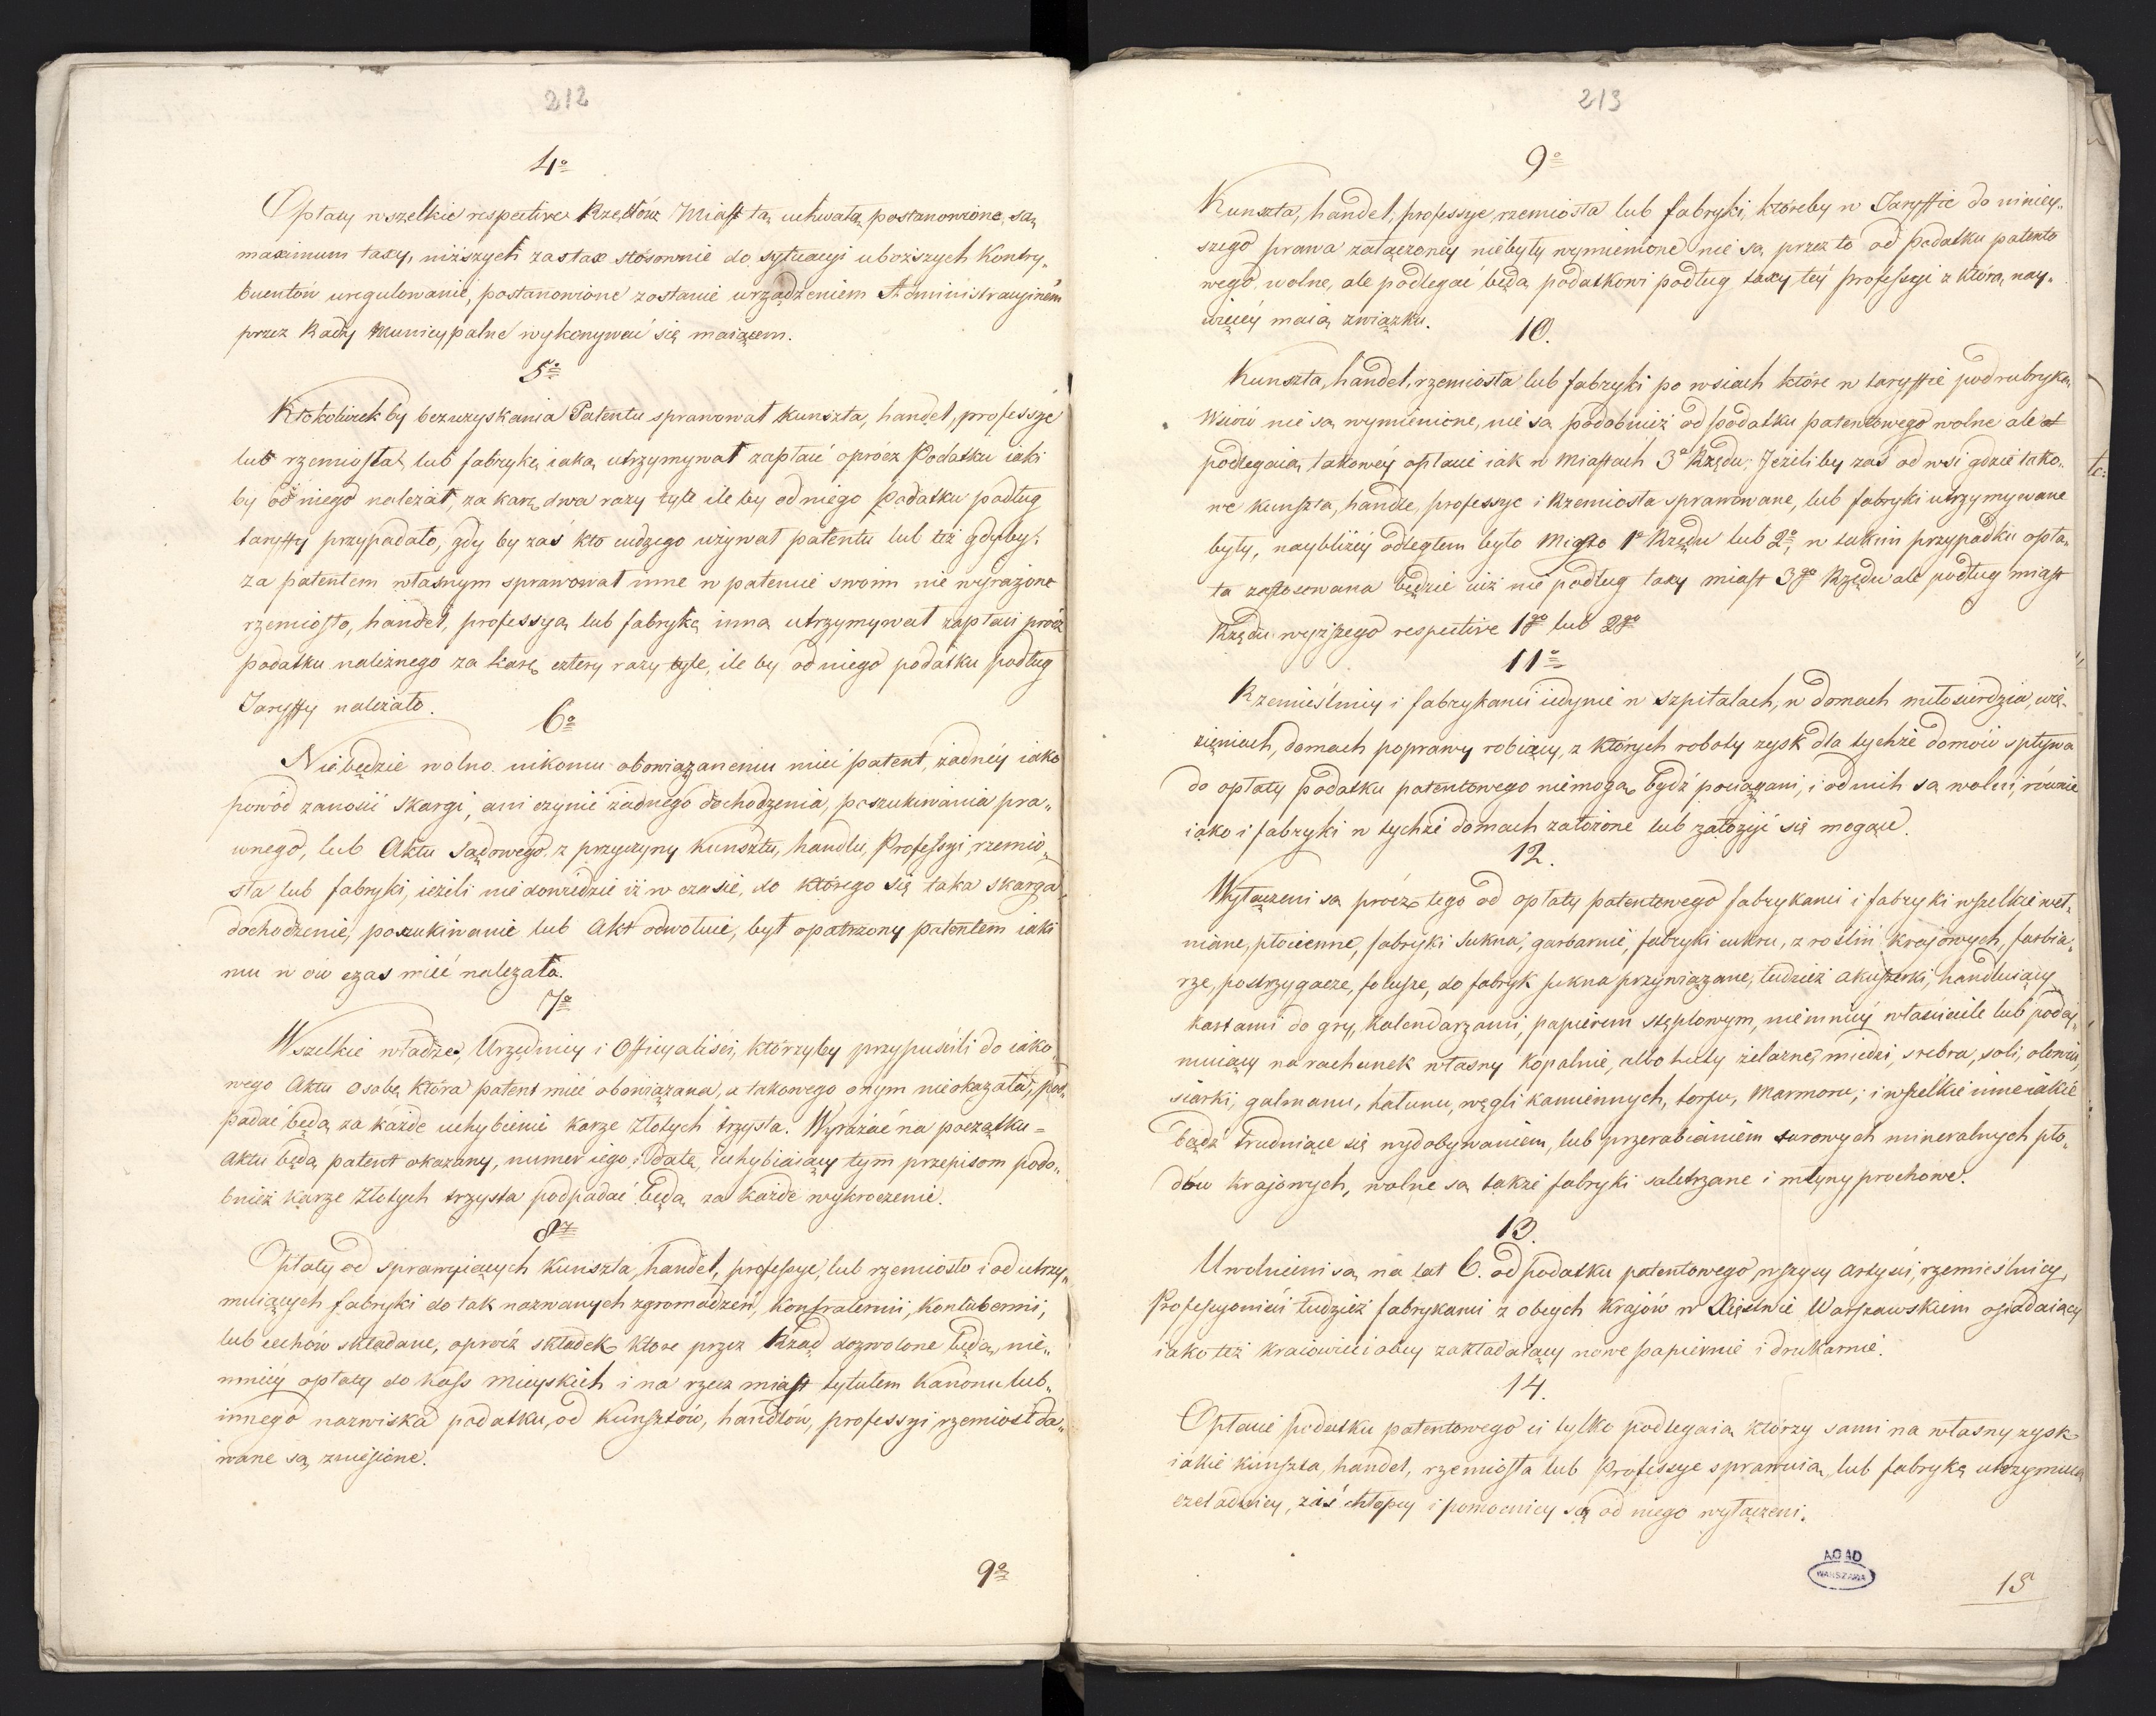 212
4o
Opłaty wszelkie respective Rzędów Miast tą uchwałą postanowione, są
maximum taxy, niższych zastax stósownie do sytuacyi uboższych Kontry„
buentów uregulowanie, postanowione zostanie urządzeniem Administracyinem
przez Rady Municypalne wykonywać się maiącem.
5o
Ktokolwiek by bez uzyskania Patentu sprawował kunszta, handel, professye
lub rzemiosła, lub fabrykę iaką utrzymywał zapłaci oprócz Podatku iaki
by od niego należał, za karę dwa razy tyle ile by od niego Podatku podług
taryffy przypadało, gdy by zaś kto cudzego używał patentu lub też gdyby
za patentem własnym sprawował inne w patencie swoim nie wyrażone
rzemiosło, handel, professyą lub fabrykę inną utrzymywał zapłaci prócz
podatku należnego za karę cztery razy tyle, ile by od niego podatku podług
Taryffy należało.
6o
Nie będzie wolno nikomu obowiązanemu mieć patent, żadnéy iako
powód zanosić skargi, ani czynić żadnego dochodzenia, poszukiwania pra„
wnego, lub Aktu Sądowego z przyczyny kunsztu, handlu, Professyi, rzemio„
sła lub fabryki, ieżeli nie dowiedzie iż w czasie, do którego się taka skarga
dochodzenie, poszukiwanie lub Akt odwołuie, był opatrzony patentem iaki
mu w ów czas mieć należało.
7o
Wszelkie władze, Urzędnicy i Officyaliści, którzyby przypuścili do iako„
wego Aktu osobę która patent mieć obowiązana, a takowego onym nieokazała, pod„
padać będą za każde uchybienie karze złotych trzysta. Wyrażać na początku
Aktu będą patent okazany, numer iego, i datę, uchybiaiący tym przepisom podo„
bnież karze Złotych trzysta podpadać będą za każde wykroczenie.
8o
Opłaty od sprawuiących kunszta, handel, professye, lub rzemiosło i od utrzy„
muiących fabryki do tak nazwanych zgromadzeń, konfraternii, kontubernii,
lub cechów składane, oprócz składek które przez Rząd dozwolone będą, nie„
mniéy opłaty do kass mieyskich i na rzecz miast tytułem Kanonu lub„
innego nazwiska podatku, od kunsztów, handlów, professyi, rzemiosł da„
wane są zniesione.
9o
213
9o
Kunszta, handel, professye, rzemiosła lub fabryki, któreby w Taryffie do niniey„
szego prawa załączonéy niebyły wymienione nie są przez to od podatku patento
wego wolne, ale podlegać będą podatkowi podług taxy téy professyi z którą nay„
więcéy maią związku.
10.
Kunszta, handel, rzemiosła lub fabryki po wsiach które w taryffie pod rubryką
Wsiów nie są wymienione, nie są podobnież od podatku patentowego wolne ale
podlegaią takowéy opłacie iak w Miastach 3o Rzędu; Jeżeli by zaś od wsi gdzie tako„
we kunszta, handle, professye i Rzemiosła sprawowane, lub fabryki utrzymywane
były, naybliżéy odległem było Miasto 1o Rzędu lub 2o, w takim przypadku opła„
ta zastosowana będzie iuż nie podług taxy miast 3go Rzędu ale podług miast
Rzędu wyższego respective 1go lub 2go
11o
Rzemieślnicy i fabrykanci iedynie w szpitalach, w domach miłosierdzia, wię„
zieniach, domach poprawy robiący, z których roboty zysk dla tychże domów spływa
do opłaty podatku patentowego niemogą bydź pociągani, i od nich są wolni, równie
iako i fabryki w tychże domach założone lub założyć się mogące.
12.
Wyłączeni są prócz tego od opłaty patentowego fabrykanci i fabryki wszelkie weł„
niane, płócienne, fabryki sukna, garbarnie, fabryki cukru, z roślin krajowych, farbia„
rze, postrzygacze, folusze, do fabryk sukna przywiązane, tudzież akuszerki, handluiący
kartami do gry, kalendarzami, papierem stęplowym, niemniéy właściciele lub podey„
muiący na rachunek własny kopalnie, albo huty żelazne, miedzi, srebra, soli, ołowiu,
siarki, galmanu, hałunu, węgli kamiennych, torfu, Marmoru; i wszelkie inne iakie
bądź trudniące się wydobywaniem, lub przerabianiem surowych mineralnych pło„
dów krajowych, wolne są także fabryki saletrzane i młyny prochowe.
13.
Uwolnieni są na lat 6. od podatku patentowego wszyscy artyści, rzemieślnicy,
Professyoniści tudzież fabrykanci z obcych krajów w Xięstwie Warszawskiem osiadaiący
iako też kraiowcy i obcy zakładaiący nowe papiernie i drukarnie.
14.
Opłacie podatku patentowego ci tylko podlegaią którzy sami na własny zysk
iakie kunszta, handel, rzemiosła lub Professye sprawuią, lub fabrykę utrzymuią
czeladnicy, zaś chłopcy i pomocnicy są od niego wyłączeni.
AGAD
WARSZAWA
15